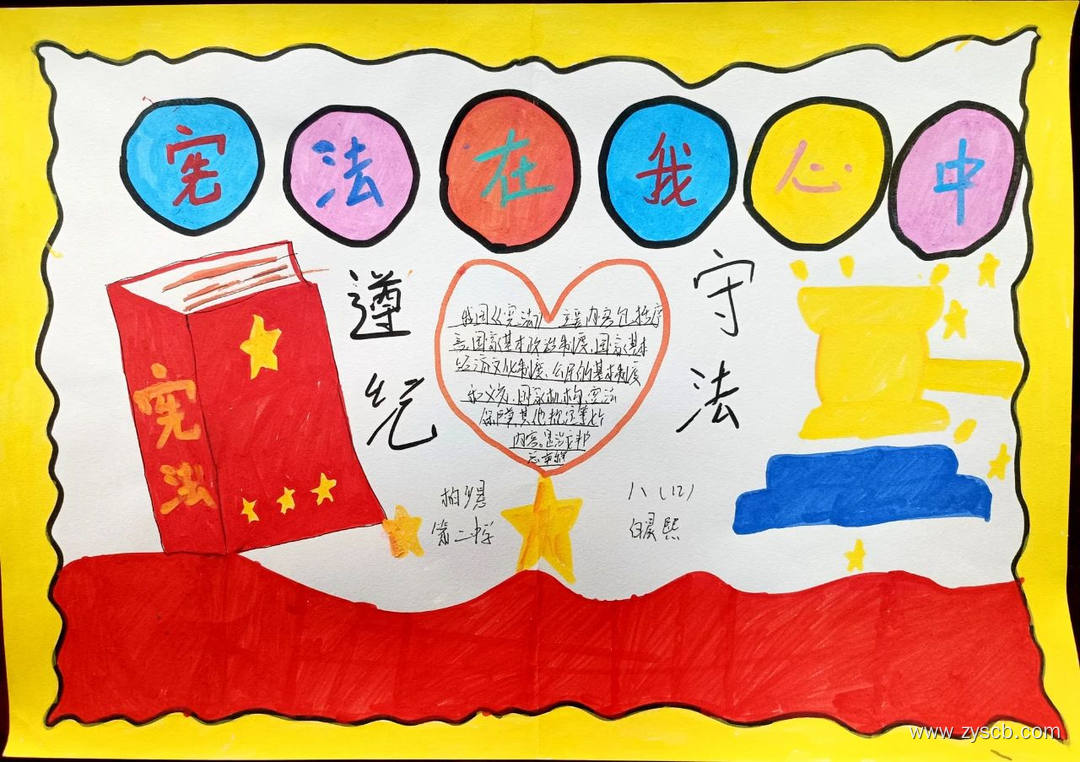 宪法在我心中
宪法
遵纪
守法
我国《宪法》主要内容包括序
言、国家基本政治制度、国家基本
经济文化制度、公民的基本制度
和义务、国家机构、宪法
保障其他规定等
内容。是治
总章程
柏乡县
第二中学
八(12)
白晨熙
www.zyscb.com